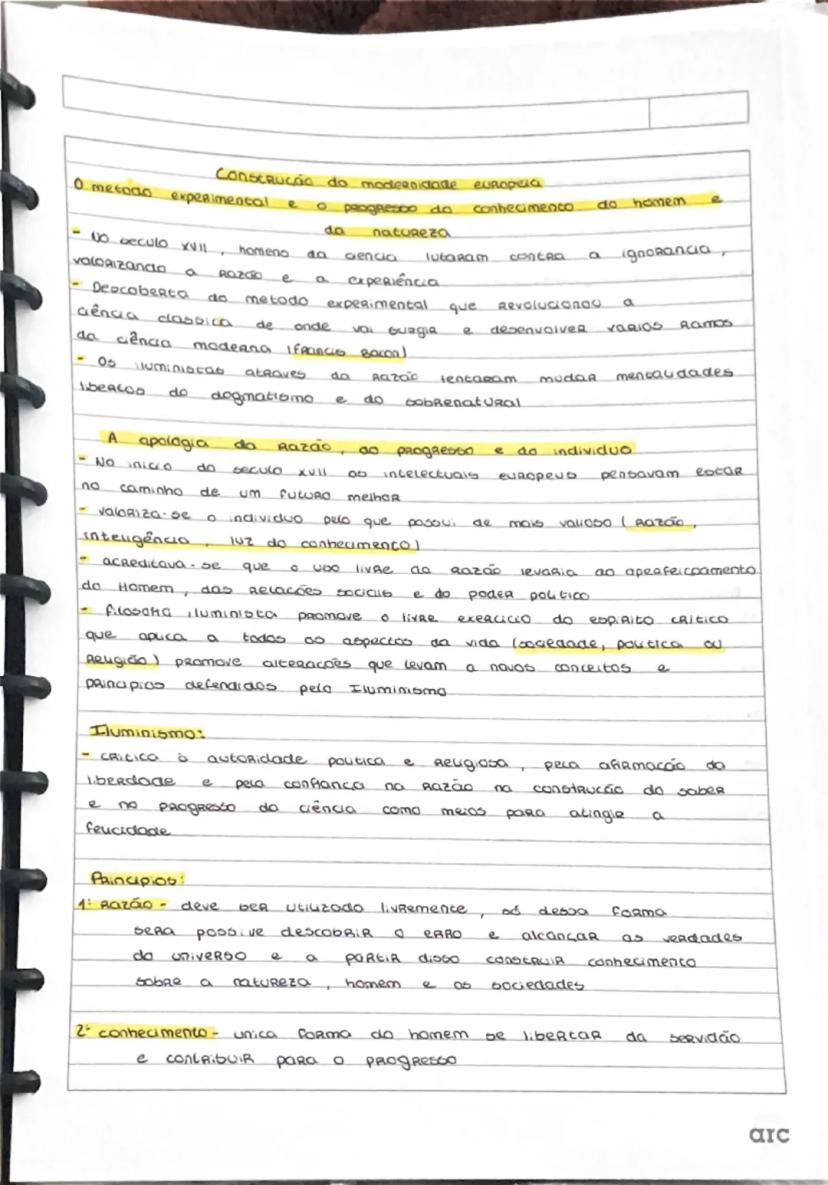 Construção da modernidade europeia
O metodo experimental e o progresso do conhecimento do homem e
da natureza
- No seculo XVII, homens da ciencia lutaram contra a ignorancia,
valorizando a razão e a experiência
- Descoberta do metodo experimental que revolucionou a
ciência classica de onde vai surgir e desenvolver varios ramos
da ciência moderna (Francis Bacon)
- Os iluministas atraves da razão tentaram mudar mentalidades
libertos do dogmatismo e do sobrenatural
A apologia da razão, do progresso e do individuo
- No inicio do seculo XVII os intelectuais europeus pensavam estar
no caminho de um futuro melhor
- valoriza-se o individuo pelo que possui de mais valioso (razão,
inteligência, luz do conhecimento)
- acreditava-se que o uso livre da razão levaria ao aperfeiçoamento
do Homem, das relações sociais e do poder politico
- filosofia iluminista promove o livre exercicio do espirito critico
que aplica a todos os aspectos da vida (sociedade, politica ou
religião) promove alterações que levam a novos conceitos e
principios defendidos pelo Iluminismo
Iluminismo:
- critica à autoridade politica e religiosa, pela afirmação da
liberdade e pela confiança na razão na construção do saber
e no progresso da ciência como meios para atingir a
felicidade
Principios:
1º Razão - deve ser utilizada livremente, só dessa forma
sera possive descobrir o erro e alcançar as verdades
do universo e a partir disso construir conhecimento
sobre a natureza, homem e as sociedades
2º conhecimento - unica forma do homem se libertar da servidão
e contribuir para o progresso
arc